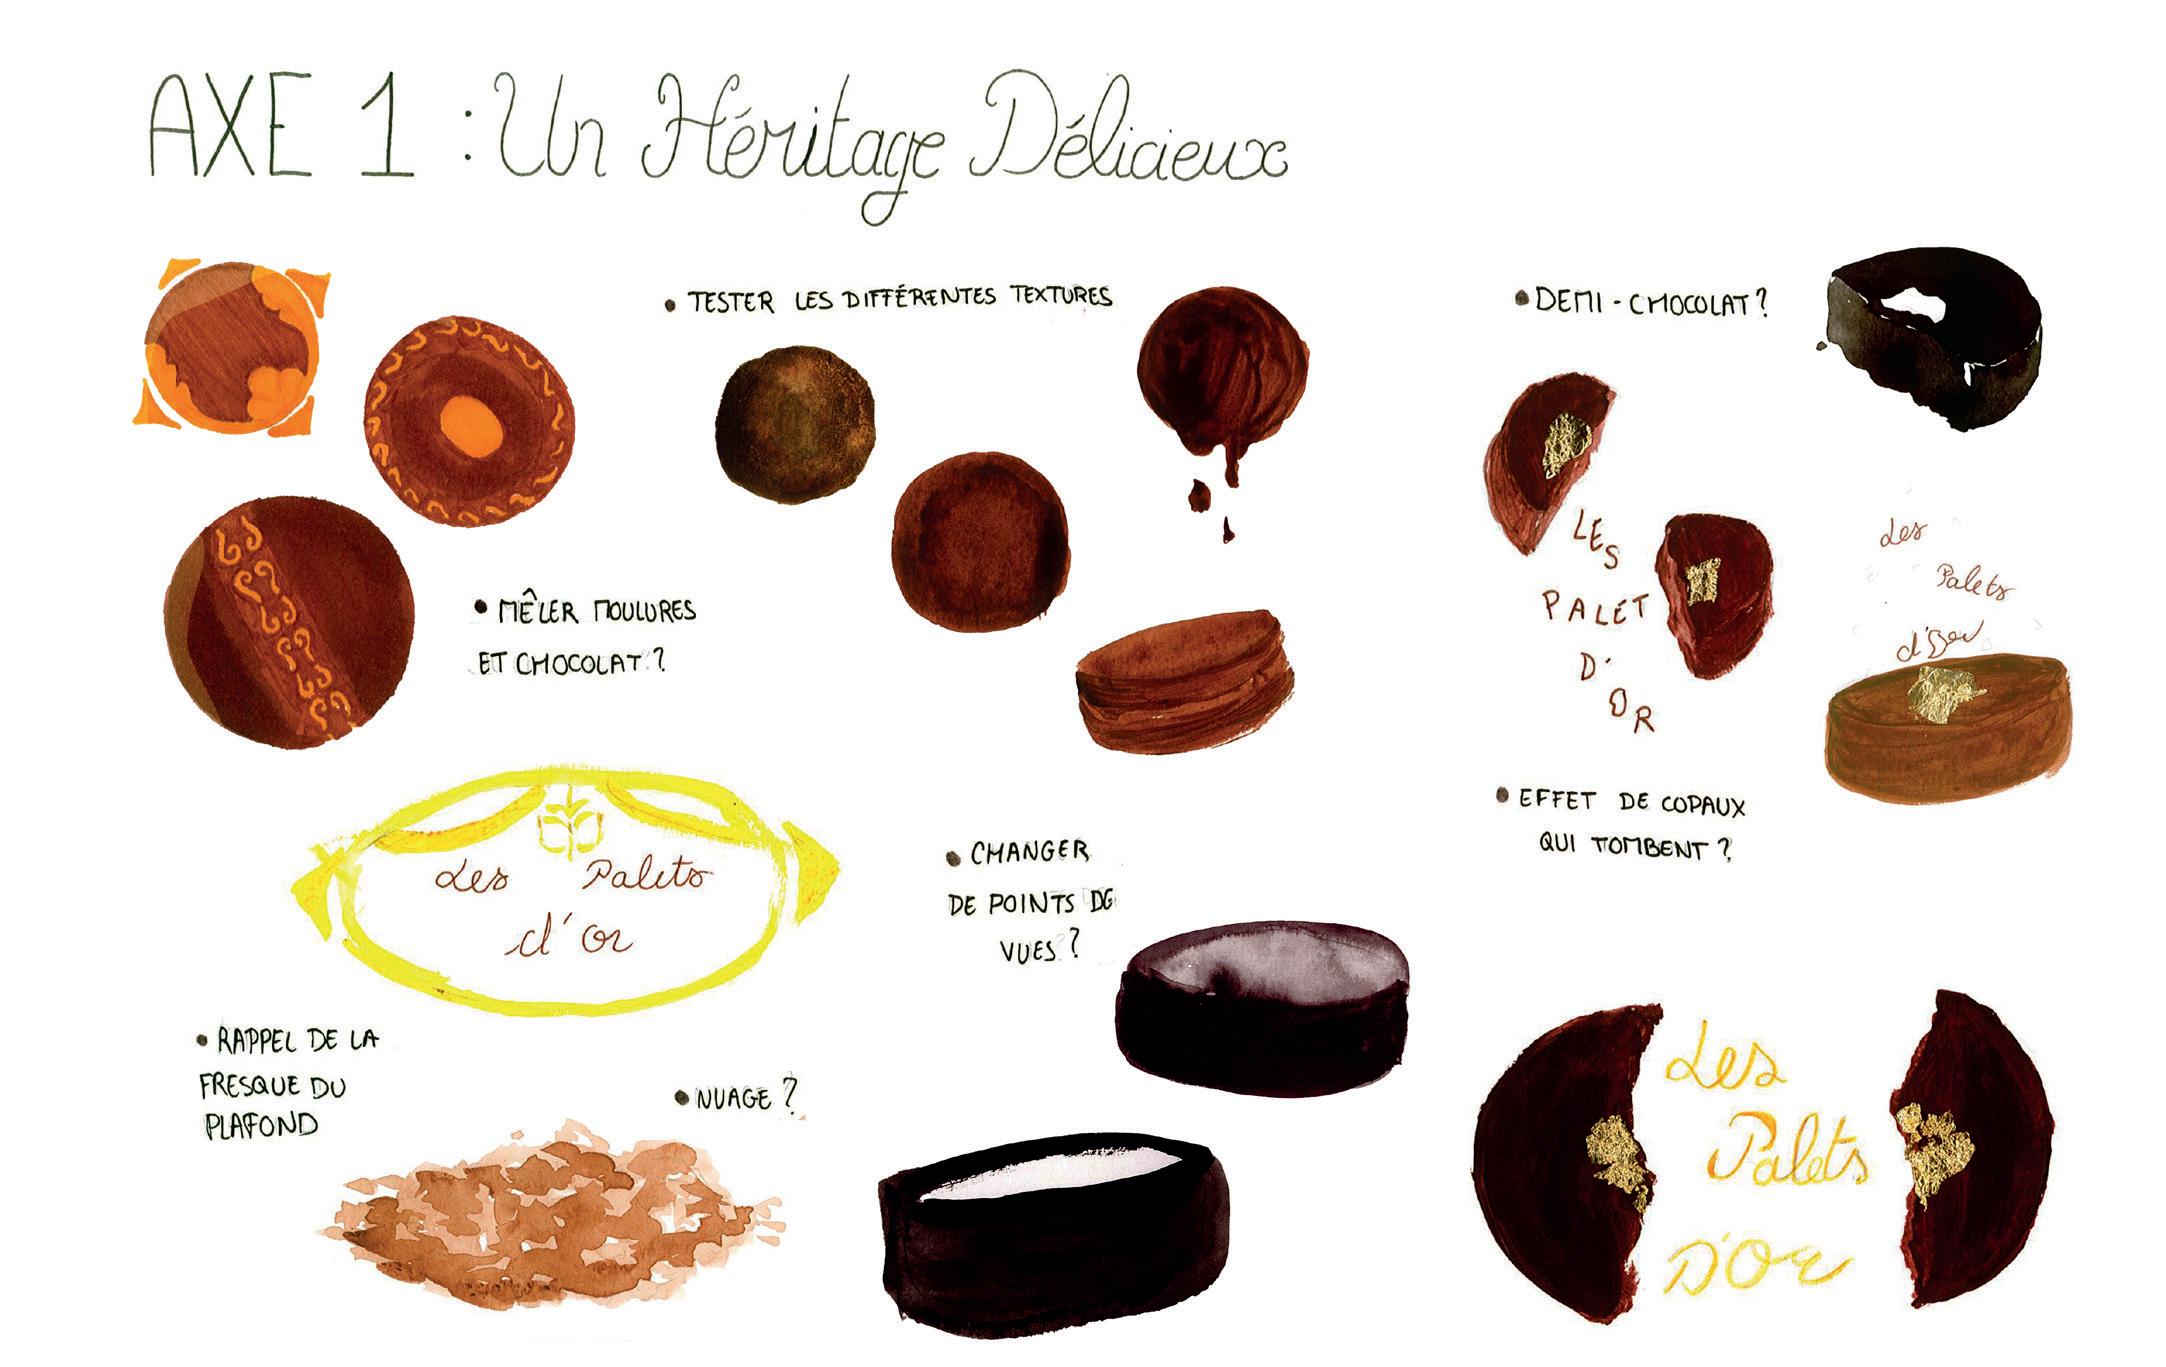 AXE 1 : Un Héritage Délicieux
• TESTER LES DIFFÉRENTES TEXTURES
• DEMI-CHOCOLAT ?
LES
PALET
D'
OR
Les
Palets
• MÊLER MOULURES
ET CHOCOLAT ?
• EFFET DE COPAUX
QUI TOMBENT ?
Les Palets
d'or
• CHANGER
DE POINTS DE
VUES ?
• RAPPEL DE LA
FRESQUE DU
PLAFOND
• NUAGE ?
Les
Palets
D'Or